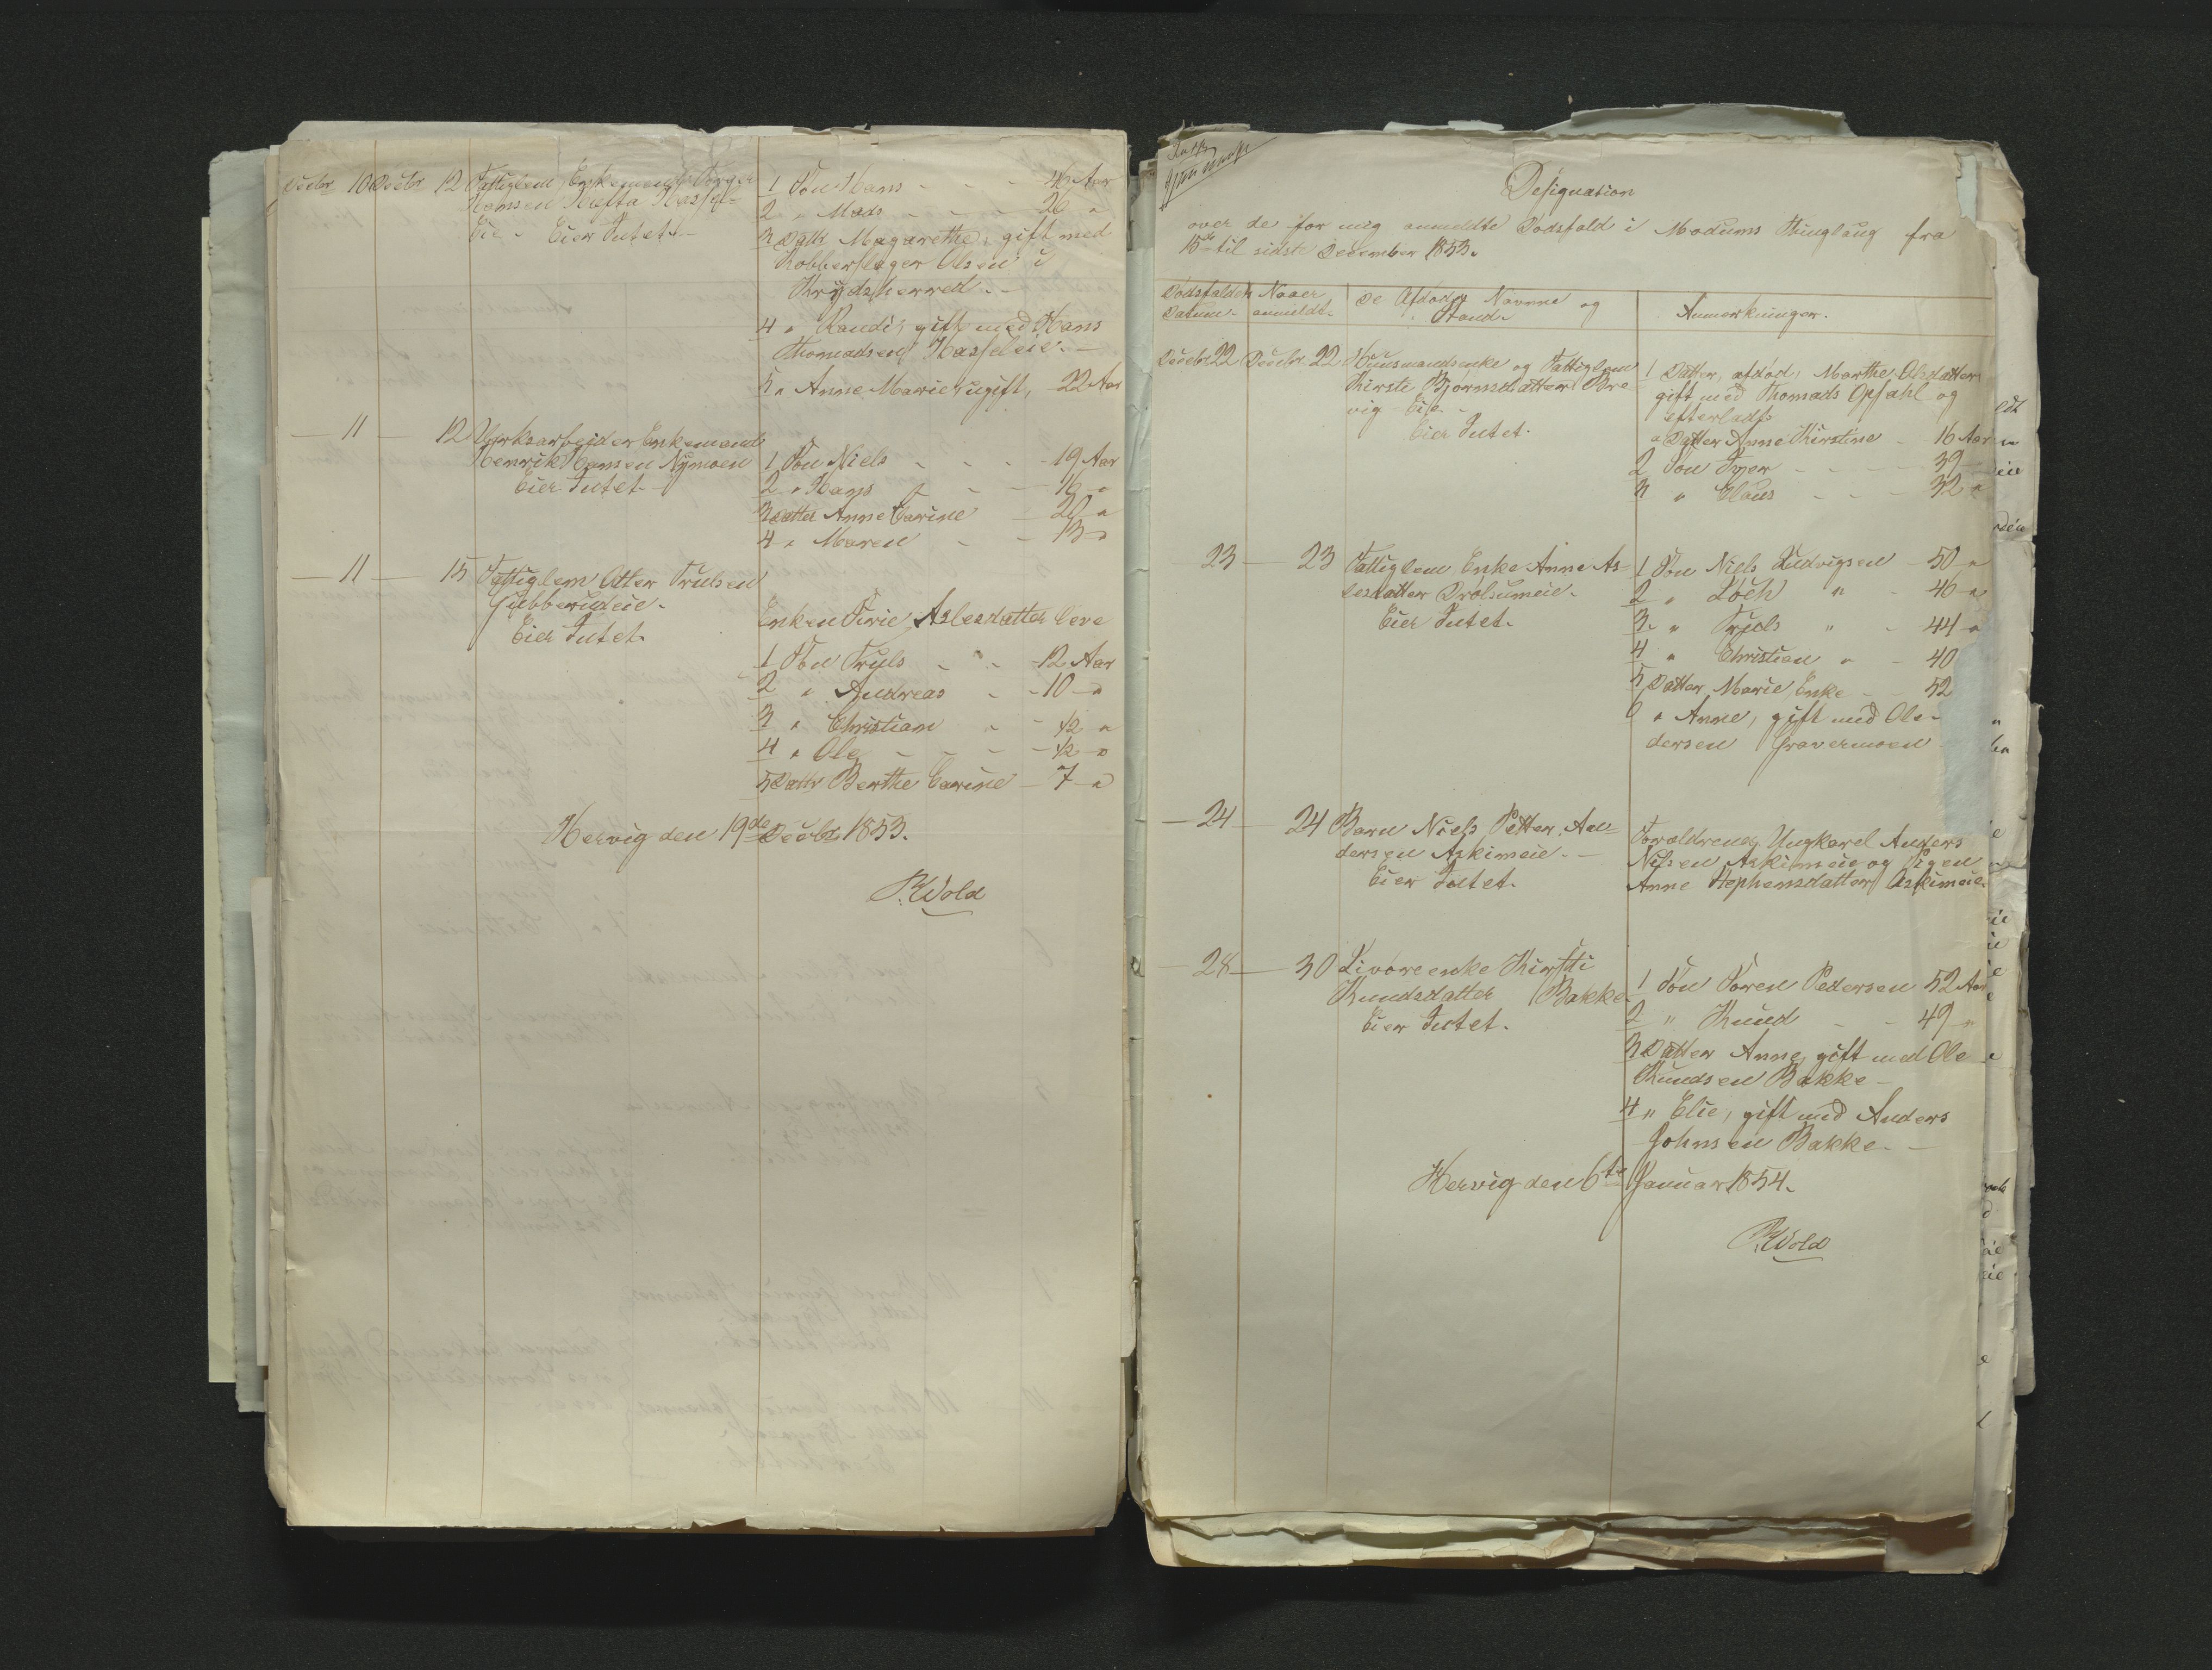 Decbr 10 Decbr 12 Fattiglem Enkemand Torger
Hansen Hafta Hassel-
Eie - Eier Intet.
1 Søn Hans - - - 46 Aar
2 " Mads - - - 26 "
3 Dattr Magarethe, gift med
Kobberslager Olsen i
Krydsherred. -
4 " Randi, gift med Hans
Thomadsen Hasseleie. -
5 " Anne Marie, ugift, 22 Aar
- 11 - 12 Verksarbeider Enkemand
Henrik Hansen Nymoen
Eier Intet -
1 Søn Niels - - - 19 Aar
2 " Hans - - - 16 "
3 Datter Anne Carine - 20 "
4 " Maren - - 13 "
- 11 - 15 Fattiglem Otter Trulsen
Gubberudeie.
Eier Intet.
Enken Sirie Aslesdatter leve
1 Søn Truls - - 12 Aar
2 " Andreas - - 10 "
3 " Christian - - 1/2 "
4 " Ole - - - 1/2 "
5 Dattr Berthe Carine - 7 "
Hervig den 19de Decbr 1853.
P. Wold
Designation
over de for mig anmeldte Dødsfald i Modums Thinglaug fra
15de til sidste December 1853.
Dødsfaldets Datum. Naaer anmeldt. De Afdødes Navne og Stand. Anmerkninger.
Decbr 22 Decbr 22 Huusmandsenke og Fattiglem
Kirsti Bjørnsdatter Bre
vig Eie -
Eier Intet.
1 Datter, afdød, Marthe Olsdatter
gift med Thomads Opsahl og
efterladt
a Datter Anne Kirstine - 16 Aar
2 Søn Iver - - - 39
3 " Claus - - - 32 "
23 - 23 Fattiglem Enke Anne As-
lesdatter Drolsumeie.
Eier Intet.
1 Søn Niels Ludvigsen - 50 "
2 " Loch " - 46 "
3 " Truls " - 44 "
4 " Christian " - 40
5 Datter Marie, Enke - - 52
6 " Anne, gift med Ole -
dersen Gravermoen
- 24 - 24 Barn Niels Petter An-
dersen Askimeie. -
Eier Intet.
Forældrene, Ungkarl Anders
Nilsen Askimeie og Pigen
Anne Stephensdatter Askimeie.
- 28 - 30 Livøreenke Kirsti
Knudsdatter Bakke.
Eier Intet.
1 Søn Søren Pedersen 52 Aar
2 " Knud - - 49 "
3 Datter Anne, gift med Ole
Knudsen Bakke -
4 " Elie, gift med Anders
Johnsen Bakke. -
Hervig den 6te Januar 1854.
P. Wold